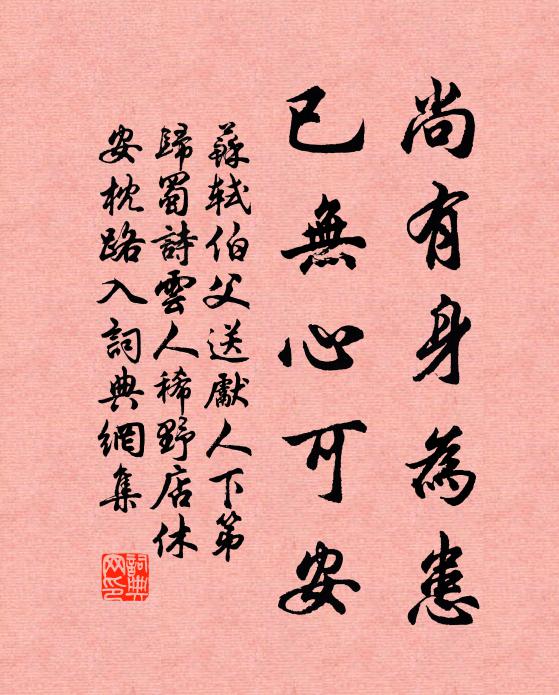 尚有身為患
已無心可安
蘇軾伯父送獻人下第
歸蜀詩雲人稀野店休
安枕路入詞典網集
詞典
网印